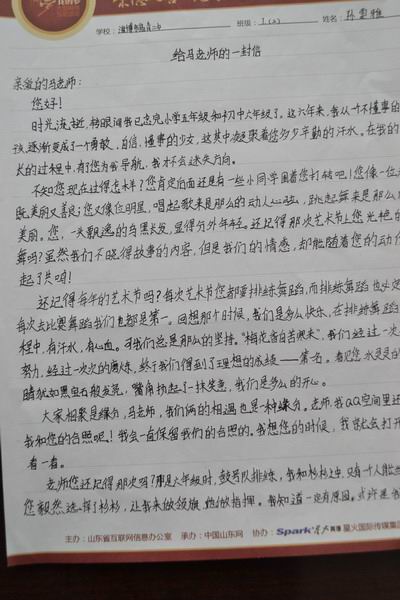 学校: 班级: 1(2) 姓名:
给马老师的一封信
亲爱的马老师:
您好!
时光流逝,转眼间我已念完小学五年级和初中六年级了。这六年来,我从一个不懂事的
孩逐渐变成了一个勇敢,自信,懂事的少女,这其中凝聚着您多少辛勤的汗水。在我的
长的过程中,有了您为我导航,我才不会迷失方向。
不知您现在过得怎样?您肯定后面还是有一些小同学围着您打转吧!您像一位
既美丽又善良;您又像位明星,唱起歌来是那么的动人心弦,跳起舞来是那么
美丽。您,一头飘逸的乌黑长发,显得分外年轻。还记得那次艺术节上您光艳的
舞吗?虽然我们不晓得故事的内容,但是我们的情感,却能随着您的动作
起了共鸣!
还记得每年的艺术节吗?每次艺术节您都要排练舞蹈,而排练舞蹈也必定
每次去比赛舞蹈我们也都是第一。回想那个时候,我们是多么快乐,在排练舞蹈
程中,有汗水,有心血。可我们总是那么的坚持。“梅花香自苦寒来”,我们经过一次
努力,经过一次次的磨炼,终于我们得到了理想的成绩——第一名。看见您水灵灵的
睛犹如黑宝石般发亮,嘴角扬起了一抹笑意,我们是多么的开心。
大家相聚是缘分,马老师,我们俩的相遇也是一种缘分。老师,我QQ空间里还
我和您的合照呢!我会一直保留我们的合照的。我想您的时候,我就会打开
看一看。
老师您还记得那次吗?那是六年级时,鼓号队排练,我和杉杉之中,只有一个人能
您毅然选择了杉杉,让我来做领旗,她做指挥。我知道一定有原因,或许是我
主办:山东省互联网信息办公室 承办:中国山东网 协办:Spark 星火国际传媒集